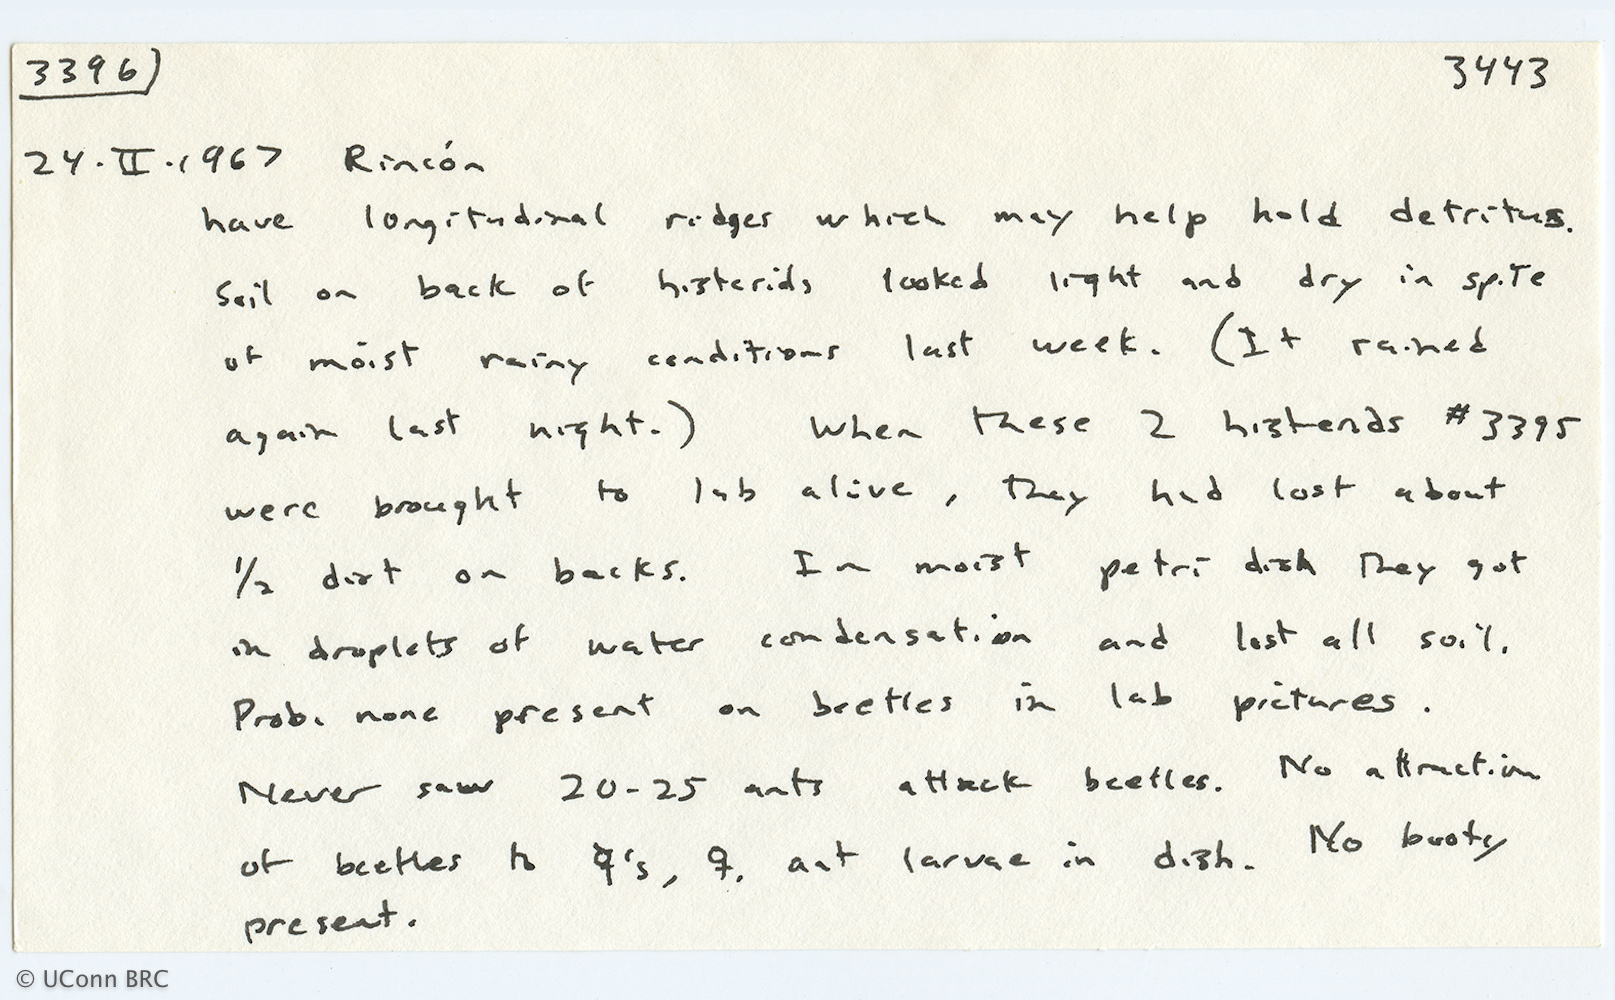 3396) 3443
24.II.1967 Rincón
have longitudinal ridges which may help hold detritus.
Soil on back of histerids looked light and dry in spite
of moist rainy conditions last week. (It rained
again last night.) When these 2 histerids #3395
were brought to lab alive, they had lost about
1/2 dirt on backs. In moist petri dish they got
in droplets of water condensation and lost all soil.
Prob. none present on beetles in lab pictures.
Never saw 20-25 ants attack beetles. No attraction
of beetles to 's, ♀, ant larvae in dish. No booty
present.
© UConn BRC